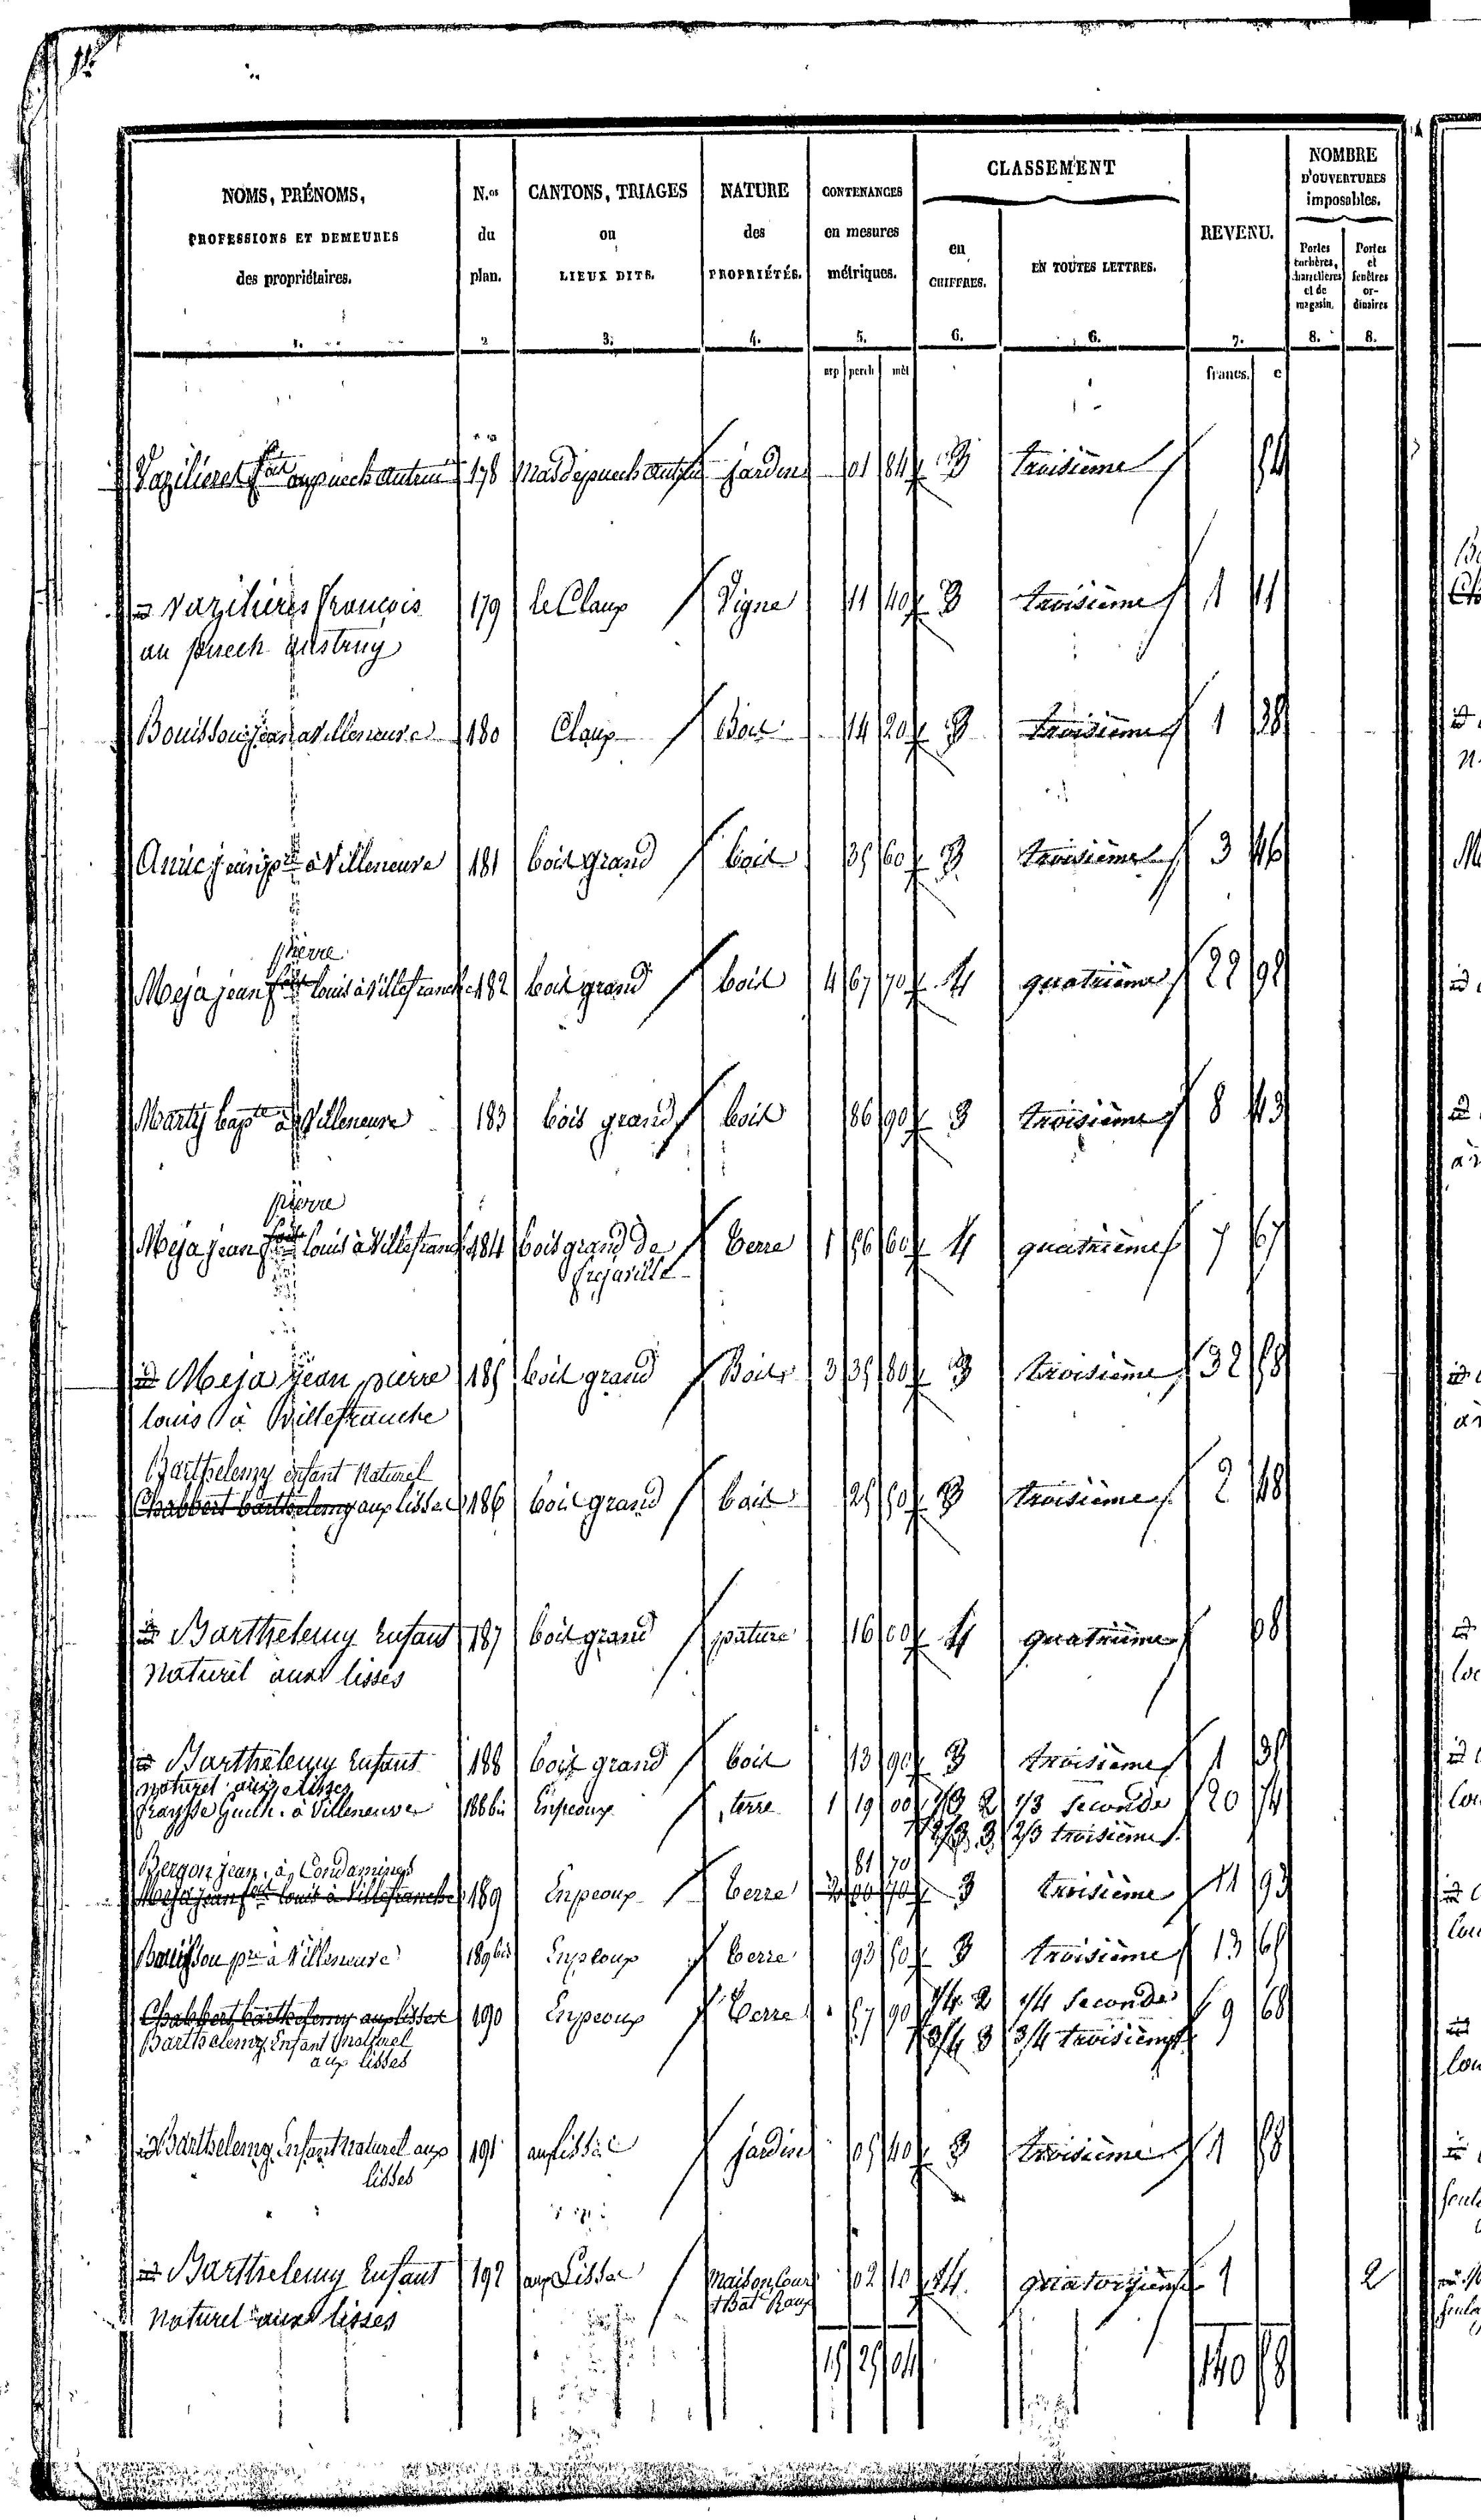 NOMS, PRÉNOMS,
PROFESSIONS ET DEMEURES
des propriétaires.
1.
N.os
du
plan.
2
CANTONS, TRIAGES
ou
LIEUX DITS.
3.
NATURE
des
PROPRIÉTÉS.
4.
CONTENANCES
en mesures
métriques.
5.
CLASSEMENT
en
CHIFFRES.
6.
EN TOUTES LETTRES.
6.
REVENU.
7.
NOMBRE
D'OUVERTURES
imposables.
Portes
cochères,
charretières
et de
magasin.
8.
Portes
et
fenêtres
or-
dinaires
8.
arp perch mèt francs. c
178 jardin 01 84 3 troisième
id Vazilières François 179 le Claux Vigne 11 40 3 troisième 1 11
au puech austruy
Bouisson jean a Villeneuve 180 Claux Bois 14 20 3 troisième 1 38
à Villeneuve 181 bois grand bois 35 60 3 troisième 3 46
pierre
Meja jean louis à Villefranche 182 bois grand bois 4 67 70 4 quatrième 22 92
Marty bapte à Villeneuve 183 bois grand bois 86 90 3 troisième 8 43
pierre
Meja jean louis à Villefranche 184 bois grand de terre 1 56 60 4 quatrième 7 67
id Meja jean pierre 185 bois grand Bois 3 35 80 3 troisième 32 58
louis à Villefranche
Barthelemy enfant Naturel
Chabbert barthelemy aux lisses 186 bois grand bois 25 50 3 troisième 2 48
id Barthelemy Enfant 187 bois grand pature 16 00 4 quatrième 68
Naturel aux lisses
id Barthelemy Enfant 188 bois grand bois 13 90 3 troisième 1 35
naturel aux lisses
fraysse Guill. à Villeneuve 188 bis terre 1 19 00 1/3 2 1/3 seconde 20 74
2/3 3 2/3 troisième
Bergon jean à Condamines 81 70
Meja jean louis à Villefranche 189 terre 3 troisième 11 93
Bouisson pre à Villeneuve 189 bis terre 93 50 3 troisième 13 65
Chabbert barthelemy aux lisses 190 terre 57 90 1/4 2 1/4 seconde 9 68
Barthelemy Enfant Naturel 3/4 3 3/4 troisième
aux lisses
id Barthelemy Enfant Naturel aux 191 aux lisses jardin 05 40 3 troisième 1 58
lisses
id Barthelemy Enfant 192 aux Lisses Maison, Cour 02 10 14 quatorzième 1 2
Naturel aux lisses
15 25 04 140 58